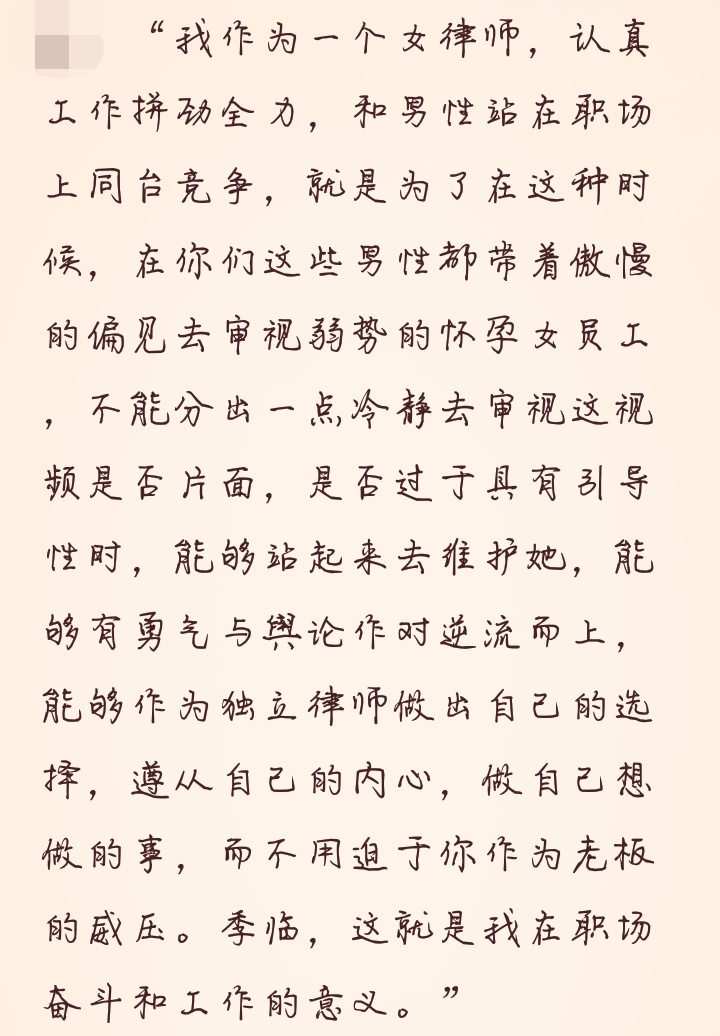 “我作为一个女律师，认真
工作拼劲全力，和男性站在职场
上同台竞争，就是为了在这种时
候，在你们这些男性都带着傲慢
的偏见去审视弱势的怀孕女员工
，不能分出一点冷静去审视这视
频是否片面，是否过于具有引导
性时，能够站起来去维护她，能
够有勇气与舆论作对逆流而上，
能够作为独立律师做出自己的选
择，遵从自己的内心，做自己想
做的事，而不用迫于你作为老板
的威压。季临，这就是我在职场
奋斗和工作的意义。”